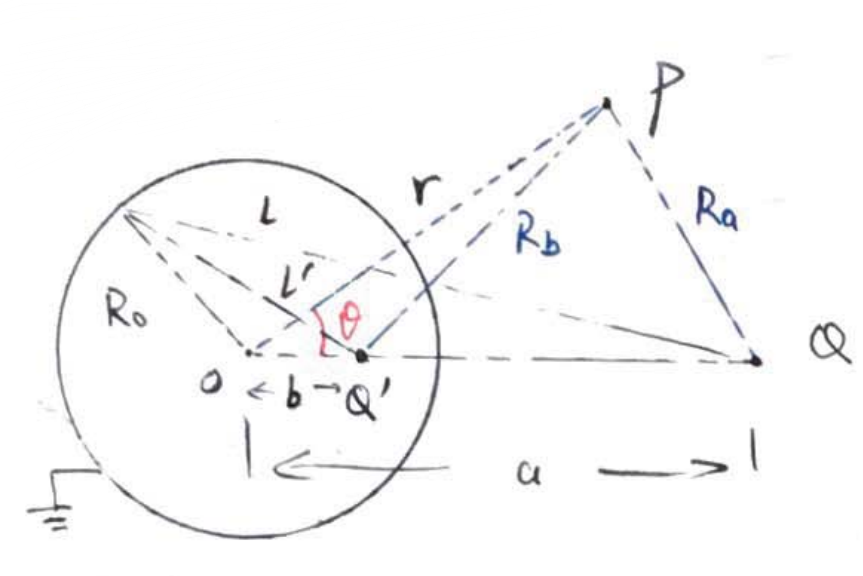 P
r
L
Ra
Rb
L'
Ro
θ
Q
O
b
Q'
a